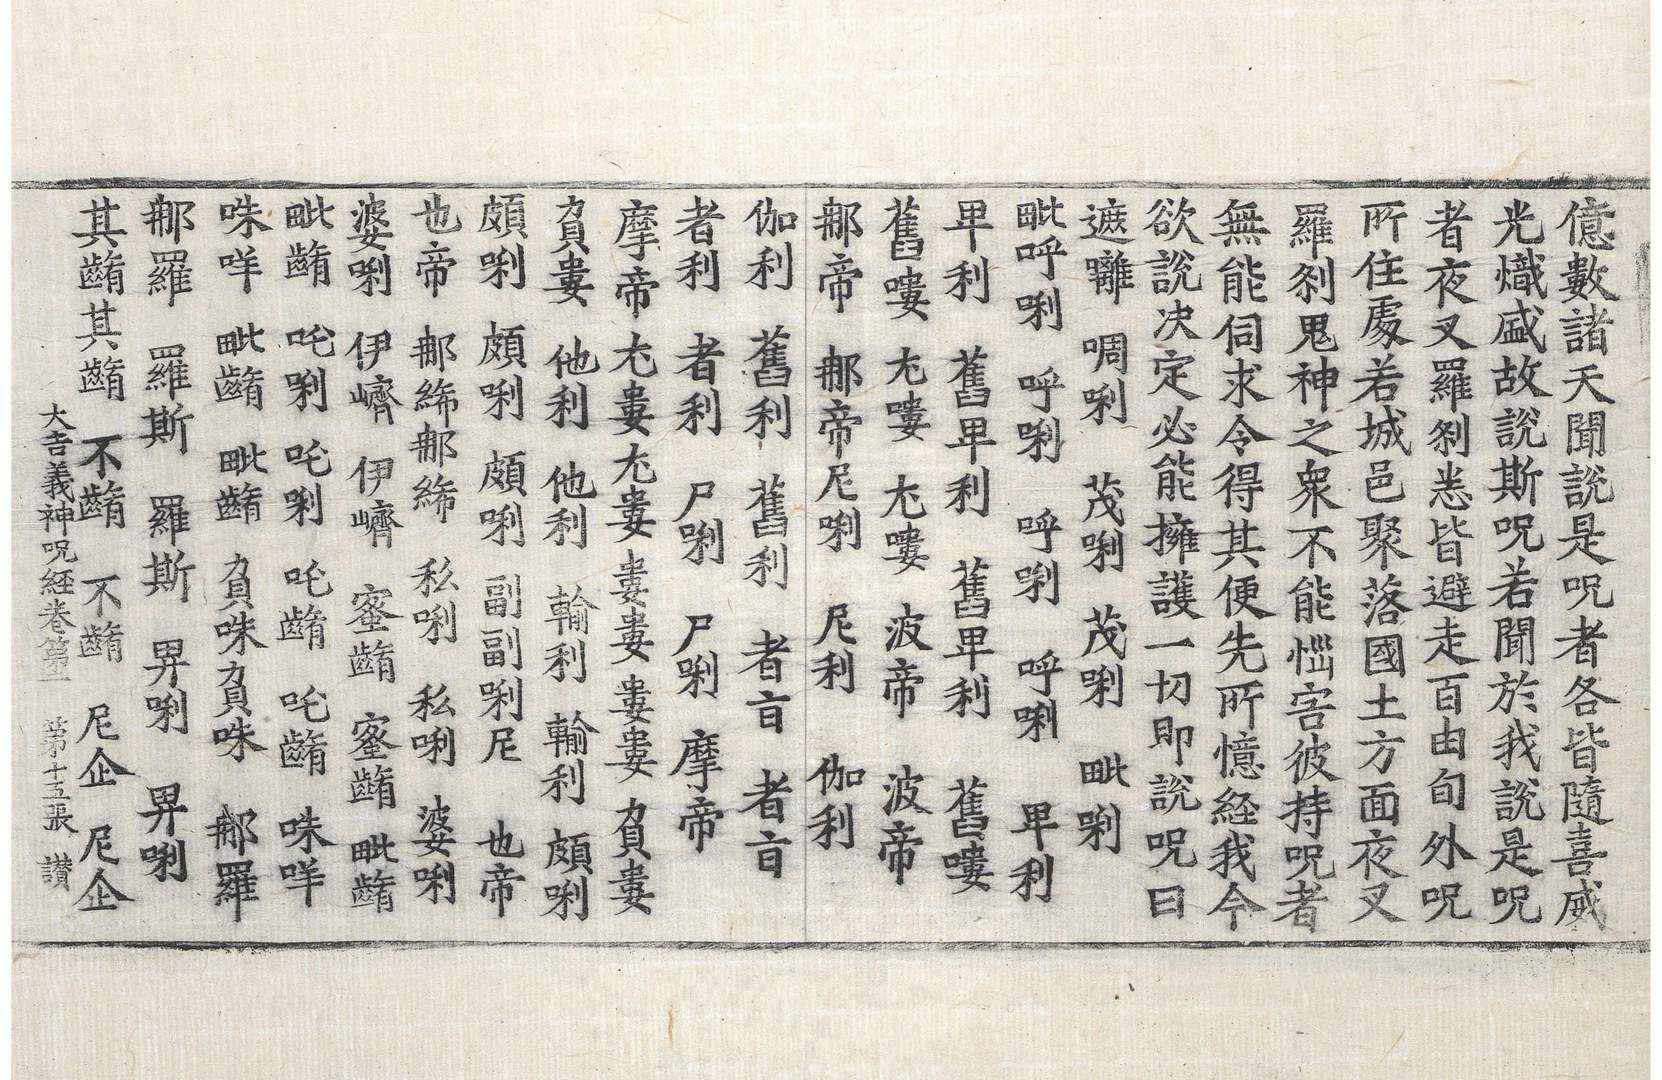 億數諸天聞說是呪者各皆隨喜威
光熾盛故說斯呪若聞於我說是呪
者夜叉羅刹悉皆避走百由旬外呪
所住處若城邑聚落國土方面夜叉
羅刹鬼神之衆不能惱害彼持呪者
無能伺求令得其便先所憶経我今
欲說決定必能擁護一切即說呪曰
遮囄 啁唎 茂唎 茂唎 毗唎
毗呼唎 呼唎 呼唎 呼唎 早利
早利 舊早利 舊早利 舊嘍
舊嘍 尢嘍 尢嘍 波帝 波帝
那帝 那帝尼唎 尼利 伽利
伽利 舊利 舊利 者㐮 者㐮
者利 者利 尸唎 尸唎 摩帝
摩帝 尢婁尢婁 婁婁 婁婁 負婁
負婁 他利 他利 輸利 輸利 頗唎
頗唎 頗唎 頗唎 副副唎尼 也帝
也帝 那絺那絺 私唎 私唎 婆唎
婆唎 伊嚌 伊嚌 蜜䶒 蜜䶒 毗䶒
毗䶒 吒唎 吒唎 吒䶒 吒䶒 咮咩
咮咩 毗䶒 毗䶒 負咮負咮 那羅
那羅 羅斯 羅斯 畀唎 畀唎
其䶒其䶒 不䶒 不䶒 尼企 尼企
大吉義神呪経卷第一 第十五張 讃